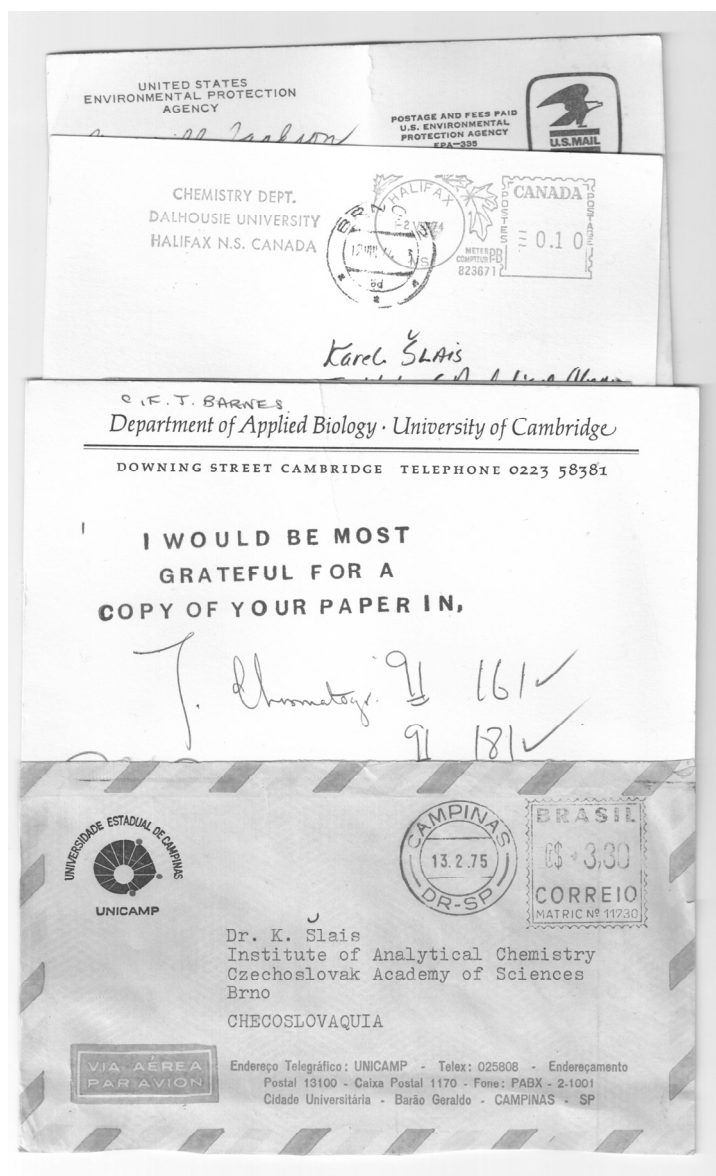 UNITED STATES
ENVIRONMENTAL PROTECTION
AGENCY
Jackson
POSTAGE AND FEES PAID
U.S. ENVIRONMENTAL
PROTECTION AGENCY
EPA-335
U.S. MAIL
CHEMISTRY DEPT.
DALHOUSIE UNIVERSITY
HALIFAX N.S. CANADA
HALIFAX
NS
BRNO
METER
COMPTEUR PB
823671
CANADA
POSTES
POSTAGE
0.10
Karel Šlais
C.F.T. BARNES
Department of Applied Biology · University of Cambridge
DOWNING STREET CAMBRIDGE TELEPHONE 0223 58381
I WOULD BE MOST
GRATEFUL FOR A
COPY OF YOUR PAPER IN,
J. Chromatogr. 91 161 ✓
91 181 ✓
UNIVERSIDADE ESTADUAL DE CAMPINAS
UNICAMP
CAMPINAS
13.2.75
DR-SP
BRASIL
3,30
CORREIO
MATRIC Nº 11730
Dr. K. Šlais
Institute of Analytical Chemistry
Czechoslovak Academy of Sciences
Brno
CHECOSLOVAQUIA
VIA AÉREA
PAR AVION
Endereço Telegráfico: UNICAMP - Telex: 025808 - Endereçamento
Postal 13100 - Caixa Postal 1170 - Fone: PABX - 2-1001
Cidade Universitária - Barão Geraldo - CAMPINAS - SP